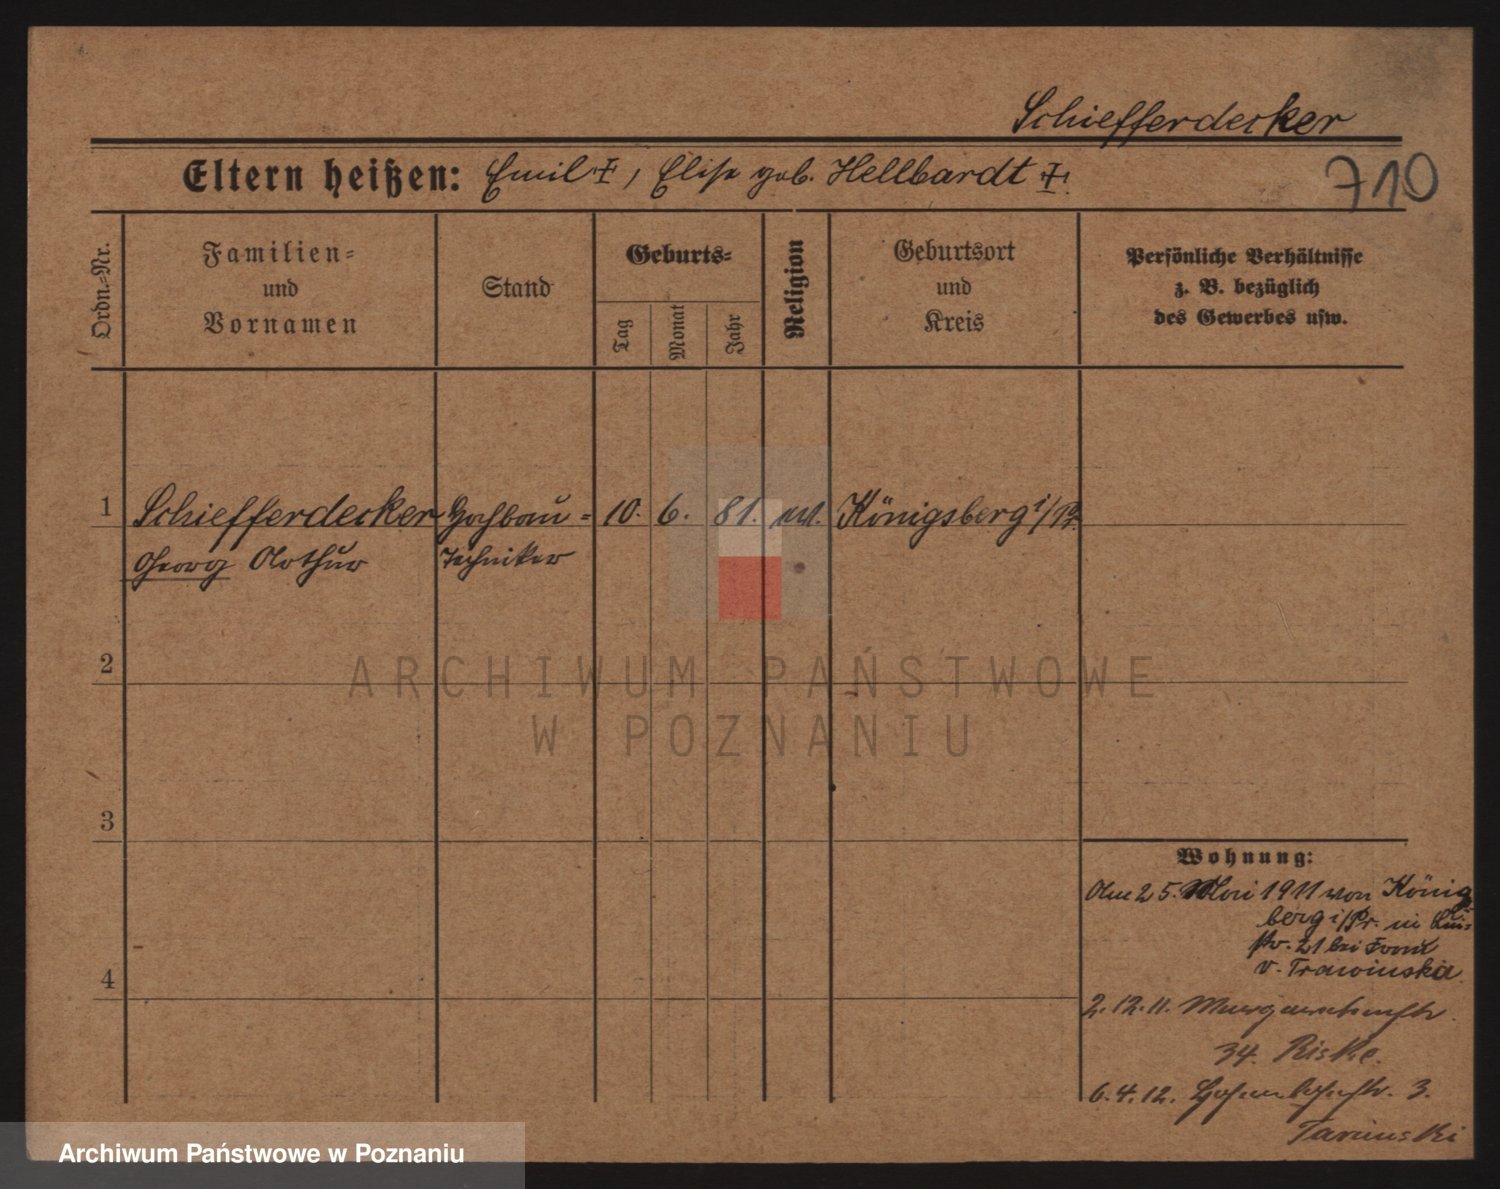 Schiefferdecker
Eltern heißen: Emil ‡, Elise geb. Hellbardt ‡.
710
Ordn.-Nr.
Familien-
und
Vornamen
Stand
Geburts-
Tag
Monat
Jahr
Religion
Geburtsort
und
Kreis
Persönliche Verhältnisse
z. B. bezüglich
des Gewerbes usw.
1 Schiefferdecker Hochbau- 10. 6. 81. ev. Königsberg i/Pr.
Georg Arthur Techniker
2
3
4
Wohnung:
Am 25. Mai 1911 von König
berg i/Pr. in
str. 21 bei Frau
v. Trawinska
2.12.11.
34. Riske.
6.4.12. 3.
Tarinski
ARCHIWUM PAŃSTWOWE
W POZNANIU
Archiwum Państwowe w Poznaniu